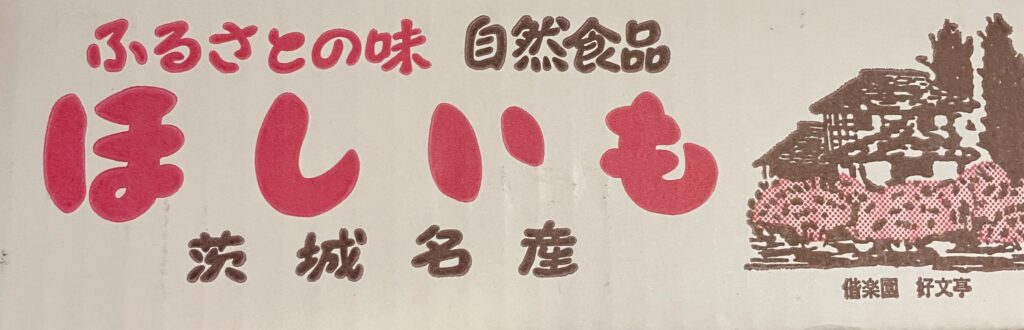 ふるさとの味 自然食品
ほしいも
茨城名産
偕楽園 好文亭